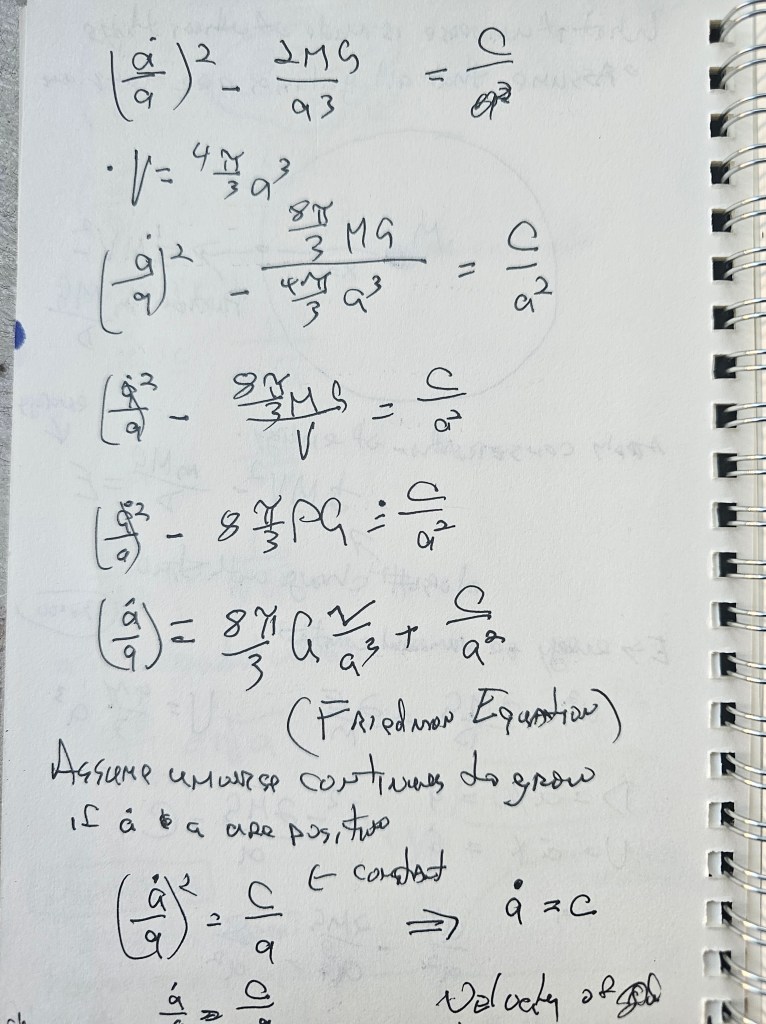 (ȧ/a)² - 2MG/a³ = C/a²
· V = 4π/3 a³
(ȧ/a)² - (8π/3 MG)/(4π/3 a³) = C/a²
(ȧ/a)² - (8π/3 MG)/V = C/a²
(ȧ/a)² - 8π/3 PG = C/a²
(ȧ/a) = 8π/3 G ν/a³ + C/a²
(Friedman Equation)
Assume universe continues to grow
if ȧ & a are positive
(ȧ/a)² = C/a ← constant ⇒ ȧ = C
ȧ = C
Velocity of